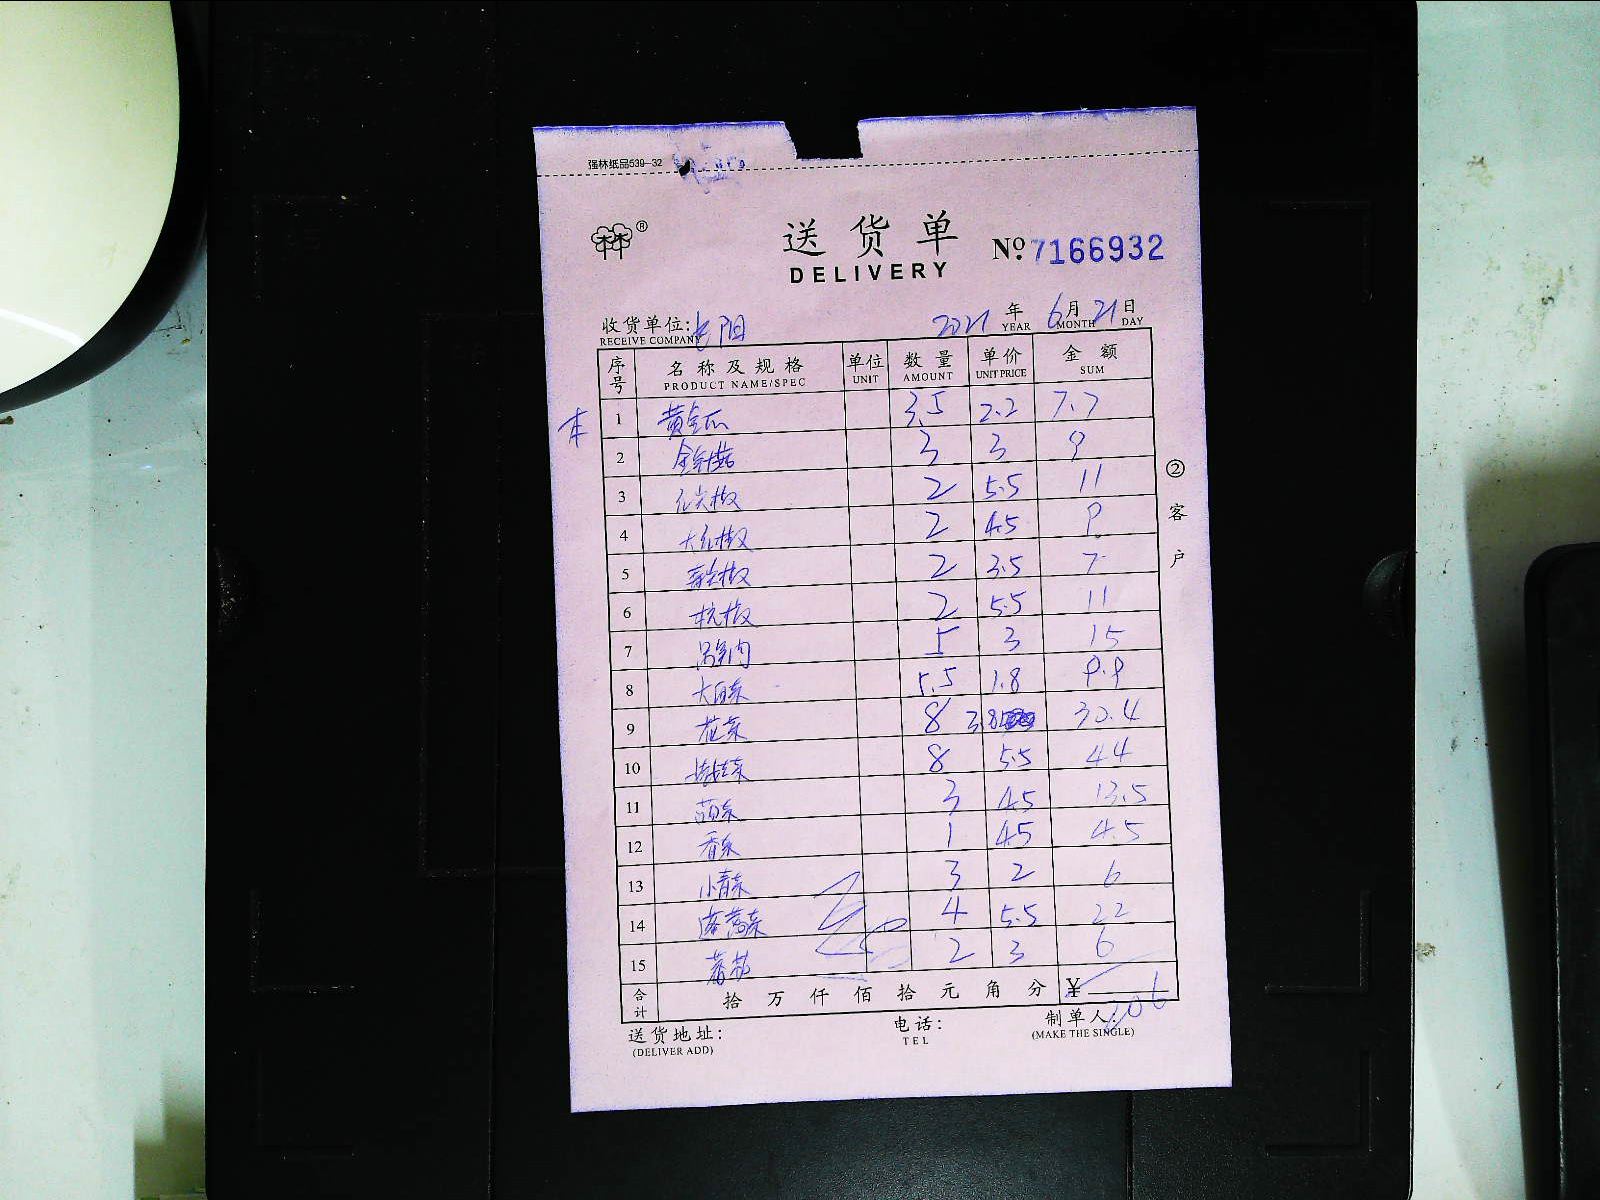 强林纸品539-32
林林®
送货单
DELIVERY
No 7166932
收货单位: 阳 2021年6月21日
RECEIVE COMPANY YEAR MONTH DAY
序号 名称及规格 单位 数量 单价 金额
PRODUCT NAME/SPEC UNIT AMOUNT UNIT PRICE SUM
本
1 黄金瓜 3.5 2.2 7.7
2 金针菇 3 3 9
3 红尖椒 2 5.5 11
4 大红椒 2 4.5 9
5 青尖椒 2 3.5 7
6 杭椒 2 5.5 11
7 5 3 15
8 大白菜 5.5 1.8 9.9
9 花菜 8 3.8 30.4
10 8 5.5 44
11 3 4.5 13.5
12 香菜 1 4.5 4.5
13 小青菜 3 2 6
14 4 5.5 22
15 2 3 6
合计 拾万仟佰拾元角分 ¥ 206
② 客户
送货地址: 电话: 制单人:
(DELIVER ADD) TEL (MAKE THE SINGLE)